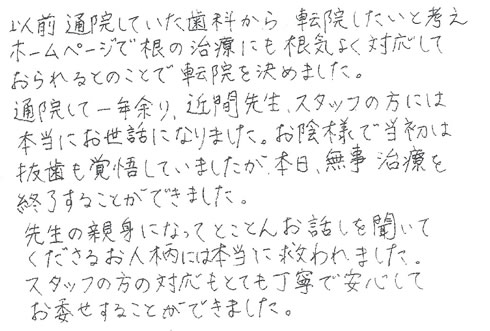 以前通院していた歯科から転院したいと考え
ホームページで根の治療にも根気よく対応して
おられるとのことで転院を決めました。
通院して一年余り、近間先生、スタッフの方には
本当にお世話になりました。お陰様で当初は
抜歯も覚悟していましたが、本日、無事治療を
終了することができました。
先生の親身になってとことんお話しを聞いて
くださるお人柄には本当に救われました。
スタッフの方の対応もとても丁寧で安心して
お委せすることができました。